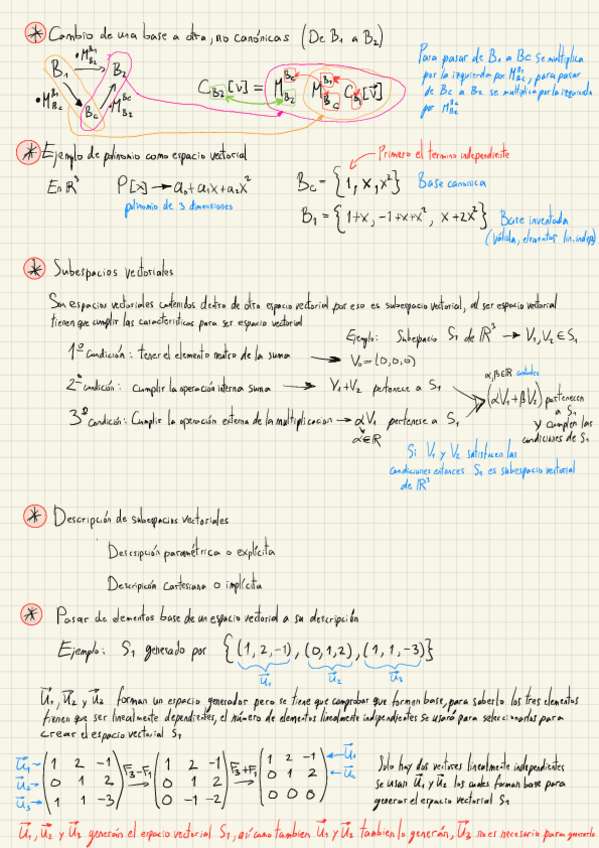 * Cambio de una base a otra, no canónicas (De B₁ a B₂)
B₁ ·M^{B₁}_{B₂} B₂
·M^{B₁}_{Bc} Bc ·M^{Bc}_{B₂}
C_{B2}[v] = M^{Bc}_{B₂} M^{B₁}_{Bc} C_{B₁}[v⃗]
Para pasar de B₁ a Bc se multiplica
por la izquierda por M^{B₁}_{Bc}, para pasar
de Bc a B₂ se multiplica por la izquierda
por M^{Bc}_{B₂}
* Ejemplo de polinomio como espacio vectorial
Primero el termino independiente
En ℝ³ P[x] → a₀+a₁x+a₂x² Bc = {1, x, x²} Base canonica
polinomio de 3 dimensiones
B₁ = {1+x, -1+x+x², x+2x²} Base inventada
(válida, elementos lin.indep)
* Subespacios vectoriales
Son espacios vectoriales contenidos dentro de otro espacio vectorial por eso es subespacio vectorial, al ser espacio vectorial
tienen que cumplir las caracteristicas para ser espacio vectorial
Ejemplo: Subespacio S₁ de ℝ³ → V₁, V₂ ∈ S₁
1º Condición: tener el elemento neutro de la suma → V₀=(0,0,0)
2º condición: Cumplir la operación interna suma → V₁+V₂ pertenece a S₁
3º condición: Cumplir la operación externa de la multiplicacion → αV₁ pertenese a S₁
α∈ℝ
α,β∈ℝ
(αV₁+βV₂) pertenecen
a S₁
y cumplen las
condiciones de S₁
Si V₁ y V₂ satisfacen las
condiciones entonces S₁ es subespacio vectorial
de ℝ³
* Descripción de subespacios vectoriales
Descripción paramétrica o explícita
Descripción Cartesiana o implícita
* Pasar de elementos base de un espacio vectorial a su descripción
Ejemplo: S₁ generado por {(1,2,-1), (0,1,2), (1,1,-3)}
u⃗₁ u⃗₂ u⃗₃
u⃗₁, u⃗₂ y u⃗₃ forman un espacio generador pero se tiene que comprobar que formen base, para saberlo los tres elementos
tienen que ser linealmente dependientes, el número de elementos linealmente independientes se usará para seleccionarlos para
crear el espacio vectorial S₁
u⃗₁→ (1 2 -1) F₃-F₁ (1 2 -1) F₃+F₁ (1 2 -1) ←u⃗₁
u⃗₂→ (0 1 2) → (0 1 2) → (0 1 2) ←u⃗₂
u⃗₃→ (1 1 -3) (0 -1 -2) (0 0 0)
Solo hay dos vectores linealmente independientes
se usan u⃗₁ y u⃗₂ los cuales forman base para
generar el espacio vectorial S₁
u⃗₁, u⃗₂ y u⃗₃ generán el espacio vectorial S₁, así como tambien u⃗₁ y u⃗₂ tambien lo generán, u⃗₃ no es necesario para generarlo